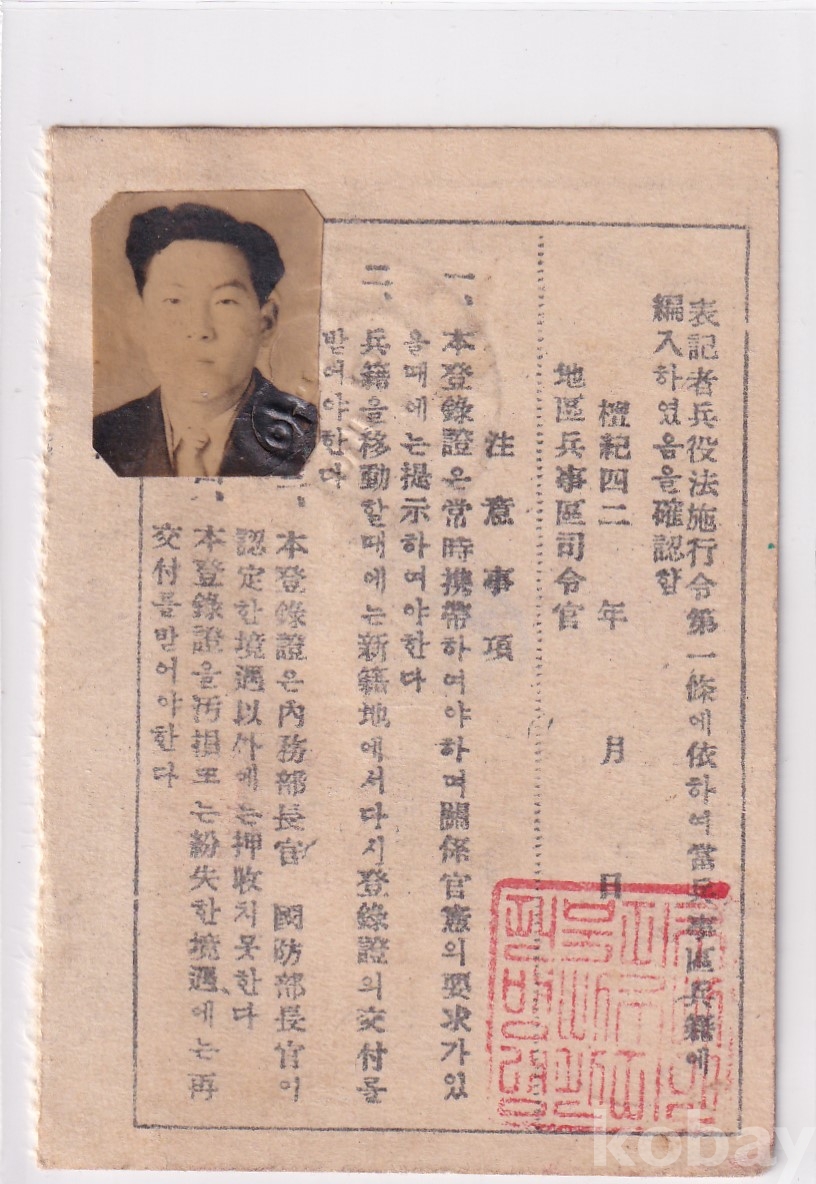 表記者兵役法施行令第一條에依하여當兵事區兵籍에
編入하였음을確認함
檀紀四二 年 月 日
地區兵事區司令官
注意事項
一、本登錄證은常時携帶하여야하며關係官憲의要求가있
을때에는提示하여야한다
二、兵籍을移動할때에는新籍地에서다시登錄證의交付를
받어야한다
三、本登錄證은內務部長官 國防部長官이
認定한境遇以外에는押收치못한다
、本登錄證을汚損또는紛失한境遇에는再
交付를받어야한다
kobay